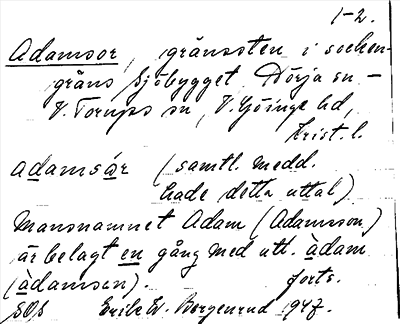 1-2.
Adamsor, gränssten i socken-
gräns Sjöbygget, Nörja sn. -
V. Torups sn, V. Göinge hd,
Krist. l.
adamsår (samtl. medd.
hade detta uttal)
Mansnamnet Adam (Adamsson)
är belagt en gång med utt. àdam
(àdamsen). forts.
SOS Erik W. Bergenrud 1947.